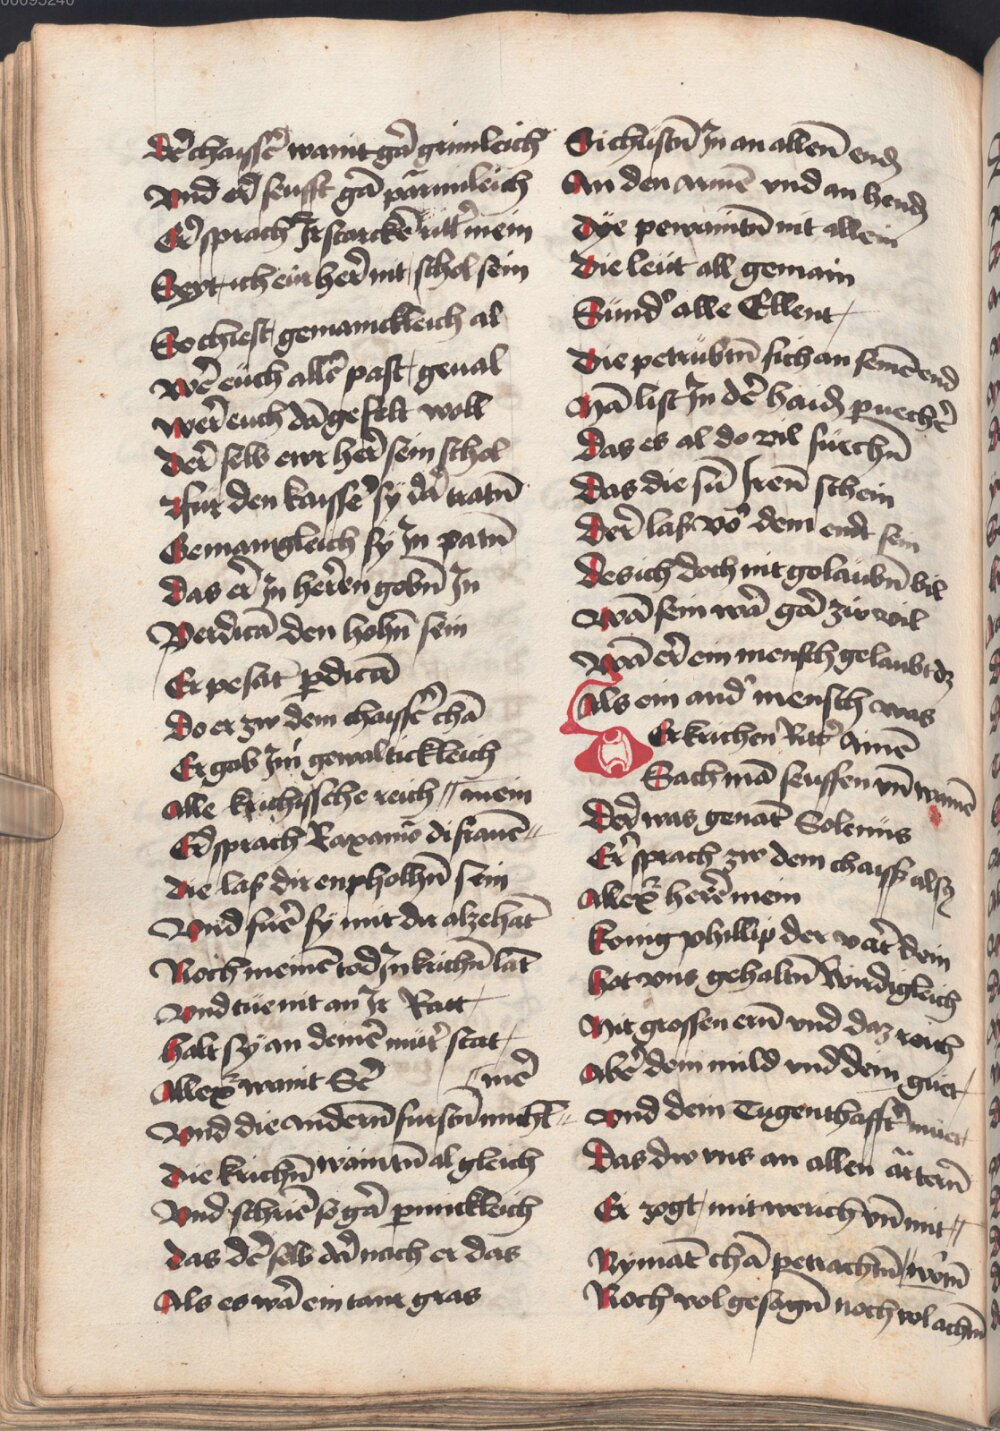 Der chaysser waint gar grimleich
Und er seufft gar pärmleich
Er sprach Ir starcke ritter mein
Seyt ich eur her nit schol sein
So chiest gemainckleich al
Wer euch aller past geual
Wer euch da gefelt woll
Der selb ewr her sein schol
Für den kaisser sy da tratn̄
Gemaingleich sy In patn̄
Das er In herren gebn̄ In
Perdicā den hohn̄ sein
Er pesāt pdicā
Do er zw dem chaisser chā
Er gab Im gewaltickleich
Alle krichissche reich
Er sprach Raxanā di frauē mein
Die las dir enpholhn̄ sein
Und fuer sy mit dir alzehāt
Noch meinē tod In krichn̄ lāt
Und tue nit an Ir Ratt
Halt sy an deinē muter stat
Allex waint
Und die andern̄ furstn̄ nicht mer
Die krichn̄ waintn̄ al gleich
Und schrien so gar pmickleich
Das der selb dar nach er das
Als es war ein tant gras
Si chustn̄ In an allen̄ end
An den armē vnd an hend
Dye pewaintn̄ nit allein
Die leut all gemain
Sünder alle Ellent
Die petrubtn̄ sich an seinē end
Mā list In der haidn̄ puecher
Das es al do vil furchn̄
Das die sun̄ Iren̄ schein
Der las vor dem endt sein
Des ich doch nit gelaubn̄ wil
Wā sein war gar zw vil
Wā er ein mensch gelaubt dz
Als ein ander mensch was
Er krichen̄ Ritter ainē
Sach mā seuffen vn̄ wainē
Der was genāt Solenus
Er sprach zw dem chaiss alsz
Allex herre mein
Konig phillip der vater dein
Hat vns gehaltn̄ Wirdigleich
Mit grossen ern̄ vnd daz reich
Aber dein mild vnd dein guet
Und dein Tugenthaffter muet
Das dw vns an allen ärtern̄
Er zogt mit werich vn̄ mit worn̄
Nymāt chā petrachtn̄
Noch vol gesagn̄ noch vol achtn̄